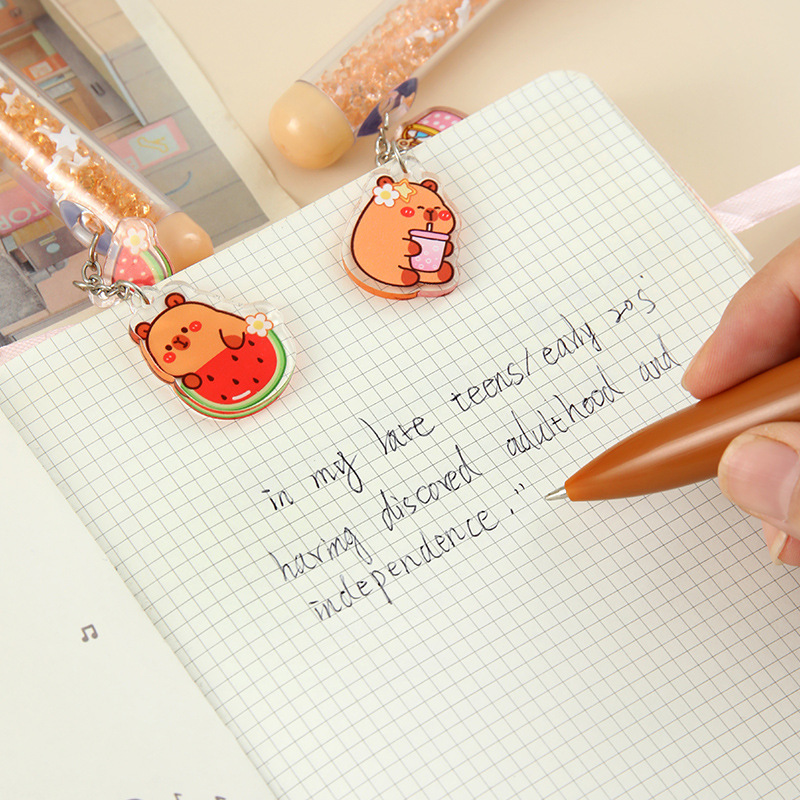 in my late teens/early 20s'
having discoved adulthood and
independence."
TOR